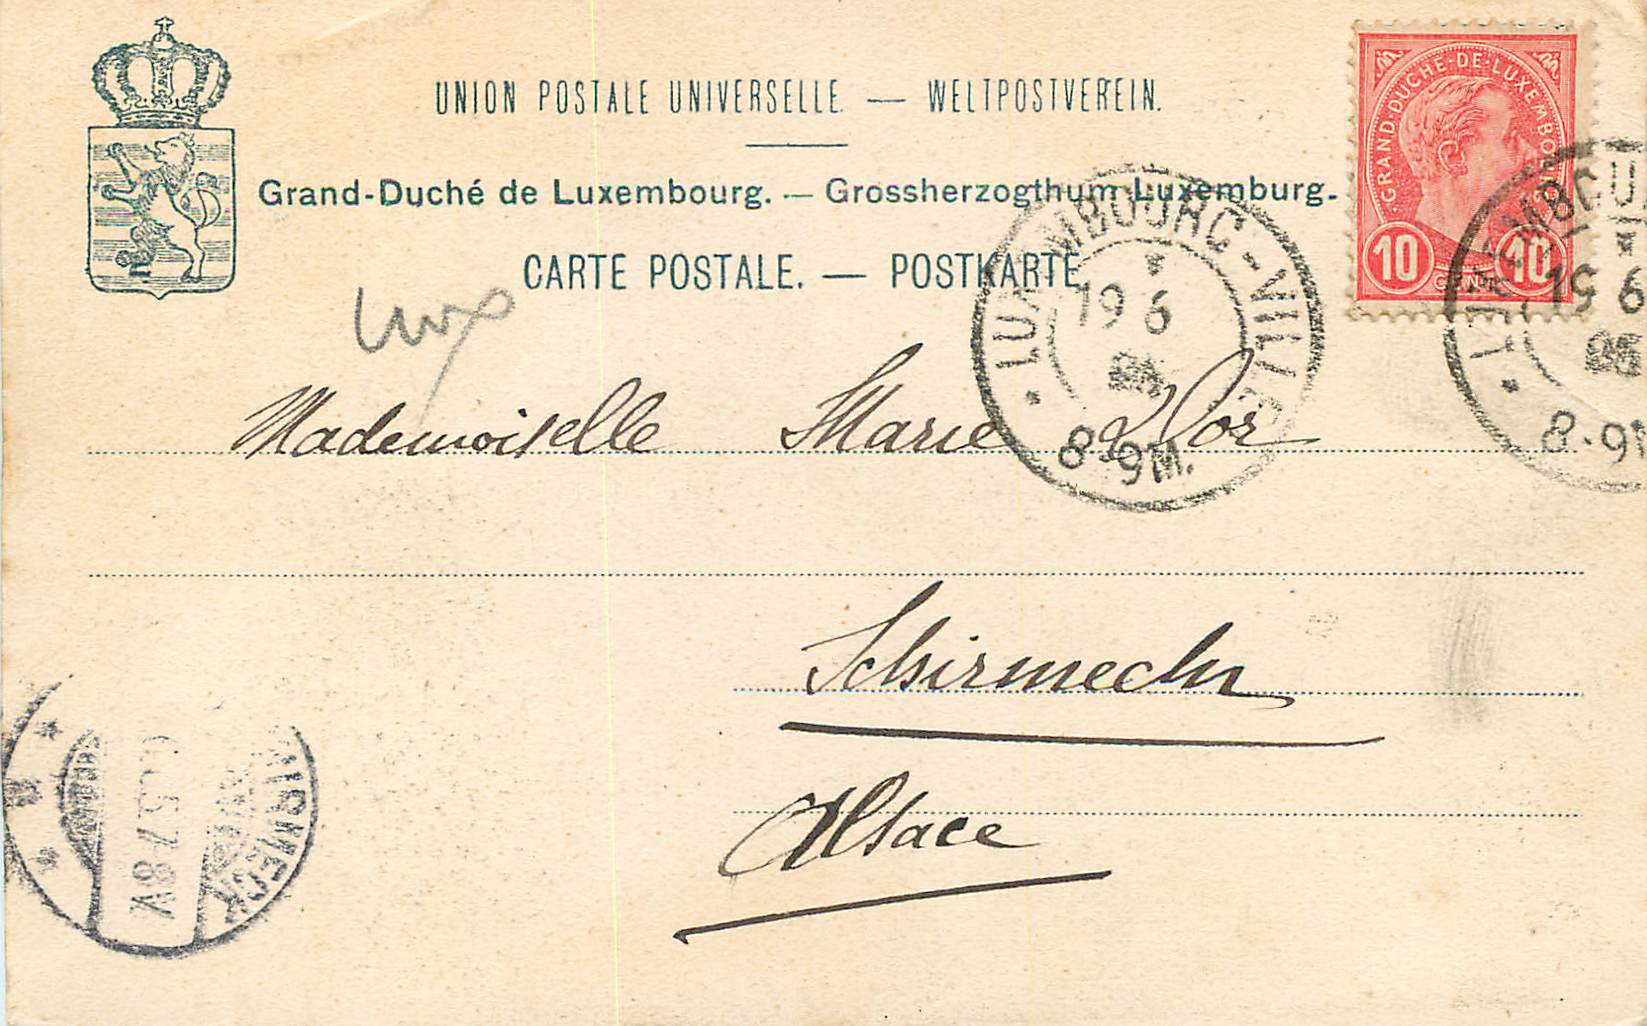 UNION POSTALE UNIVERSELLE. — WELTPOSTVEREIN.
GRAND-DUCHÉ-DE-LUXEMBOURG
10 CENT. 10
Grand-Duché de Luxembourg. — Grossherzogthum Luxemburg.
CARTE POSTALE. — POSTKARTE
LUXEMBOURG-VILLE
19 6
8-9M.
LUXEMBOU
19 6
8-9M
Lux
Mademoiselle Marie
Schirmeck
Alsace
SCHIRMECK
5.7-8V.